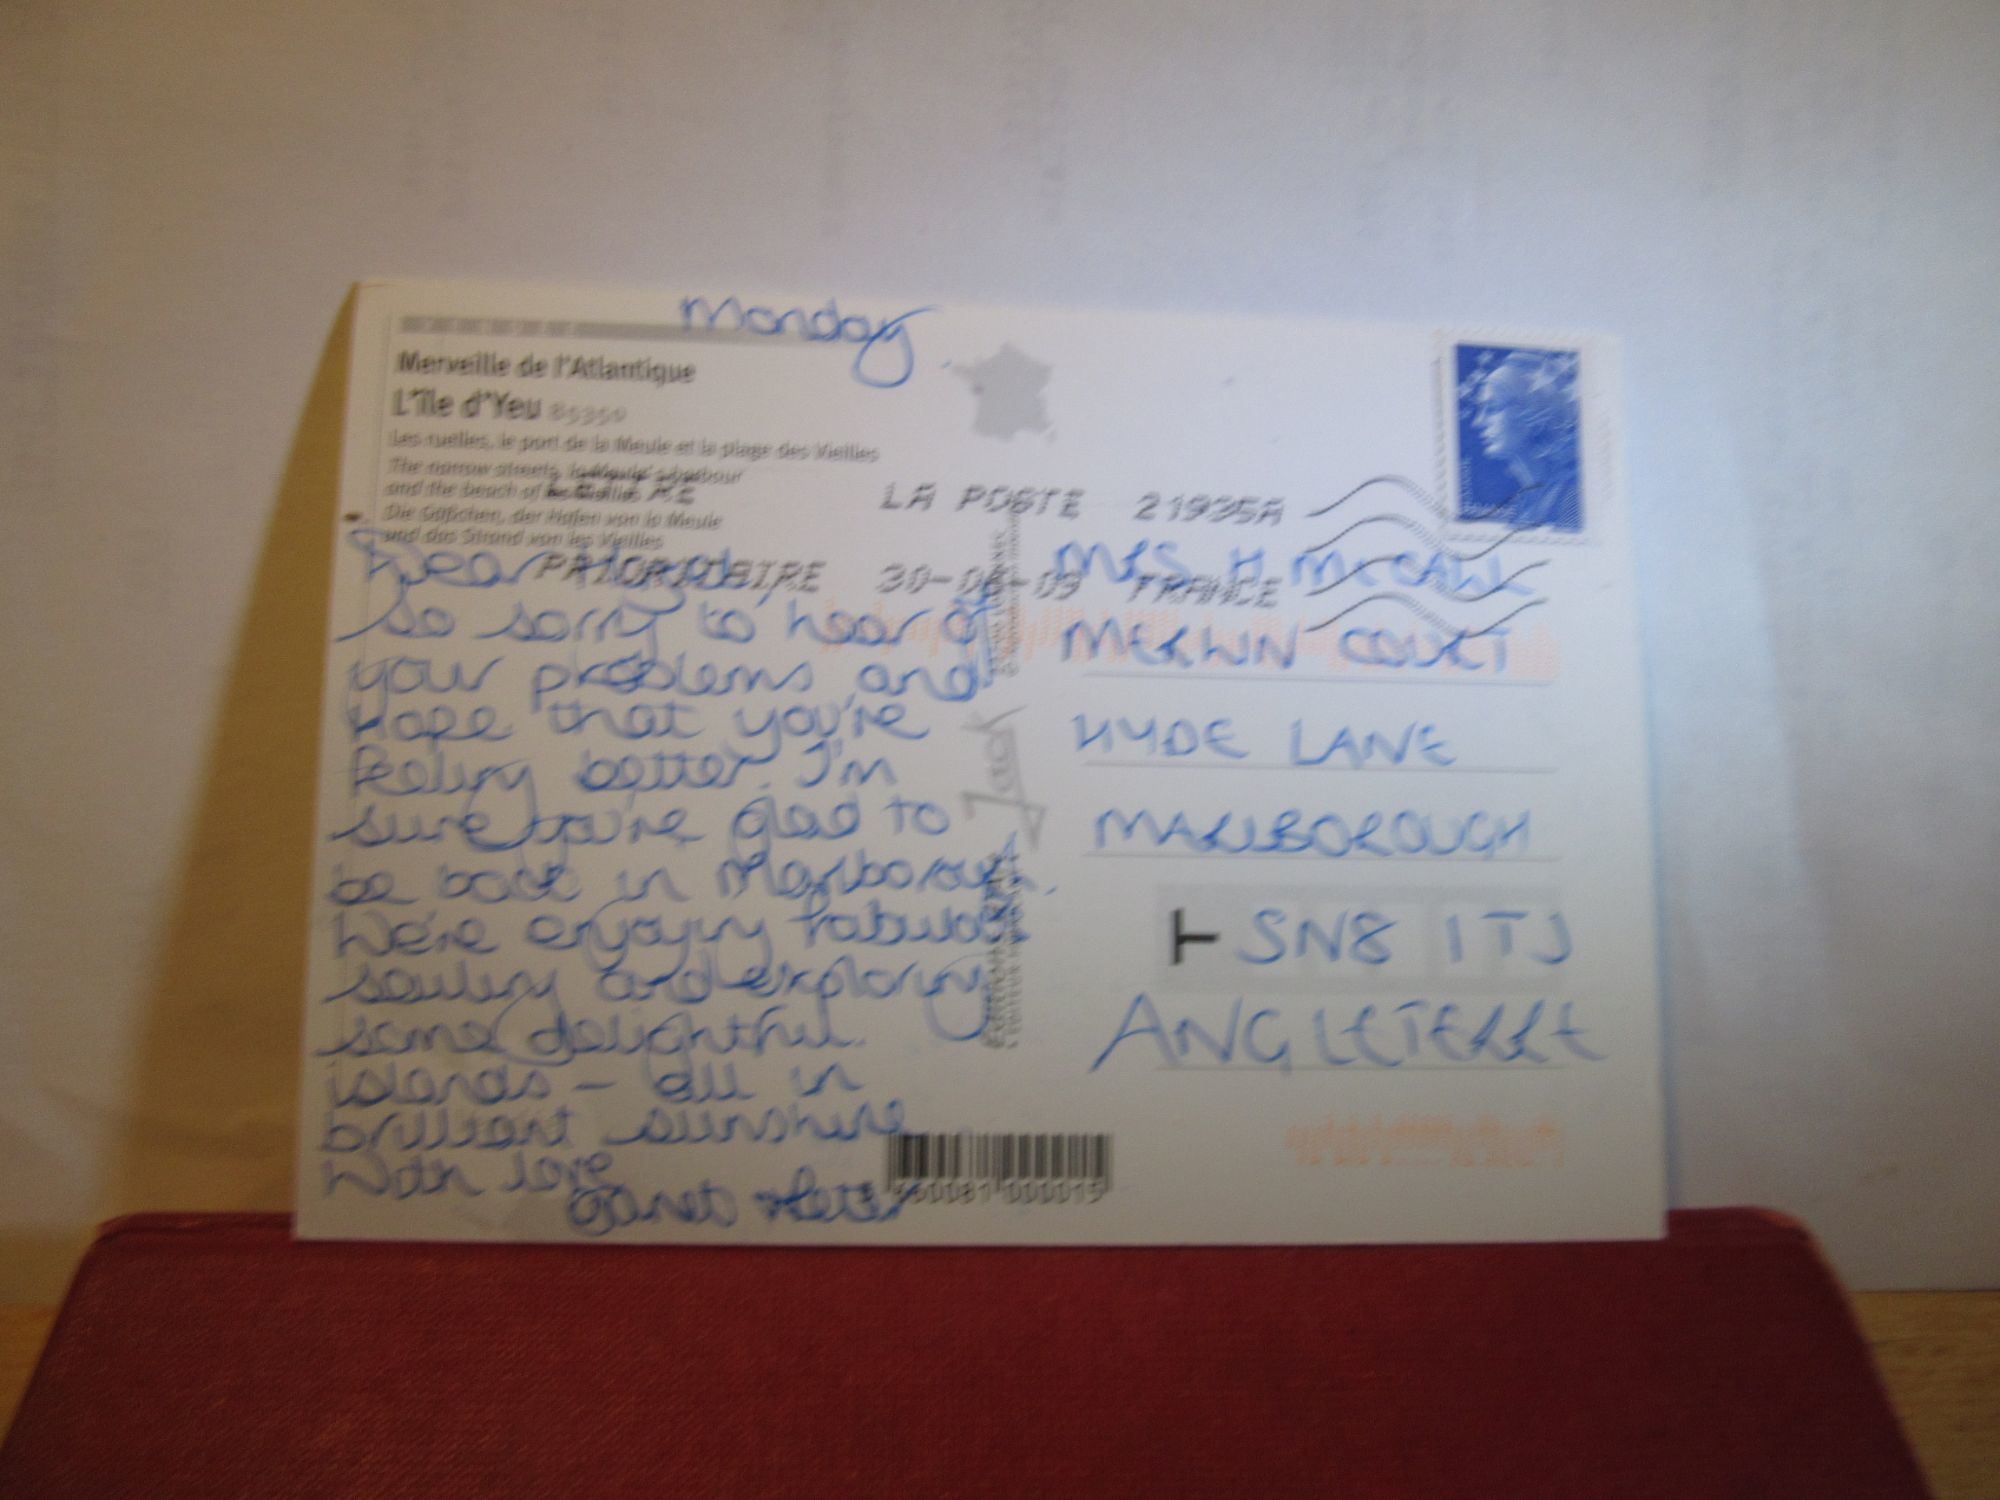 Monday
Merveille de l'Atlantique
L'Île d'Yeu 85350
Les ruelles, le port de la Meule et la plage des Vieilles
The narrow streets, la Meule's harbour
and the beach of les Vieilles
Die Gäßchen, der Hafen von la Meule
und das Strand von les Vieilles
LETTRE LA POSTE 21935A
PRIORITAIRE 30-06-09 FRANCE
Dear
So sorry to hear of
your problems and
hope that you're
feeling better. I'm
sure you're glad to
be back in Marlborough.
We're enjoying fabulous
sailing and exploring
some delightful
islands - all in
brilliant sunshine
With love
Janet & Peter
Jack
MRS H MCCAW
MERLIN COURT
HYDE LANE
MARLBOROUGH
SN8 1TJ
ANGLETERRE
000015